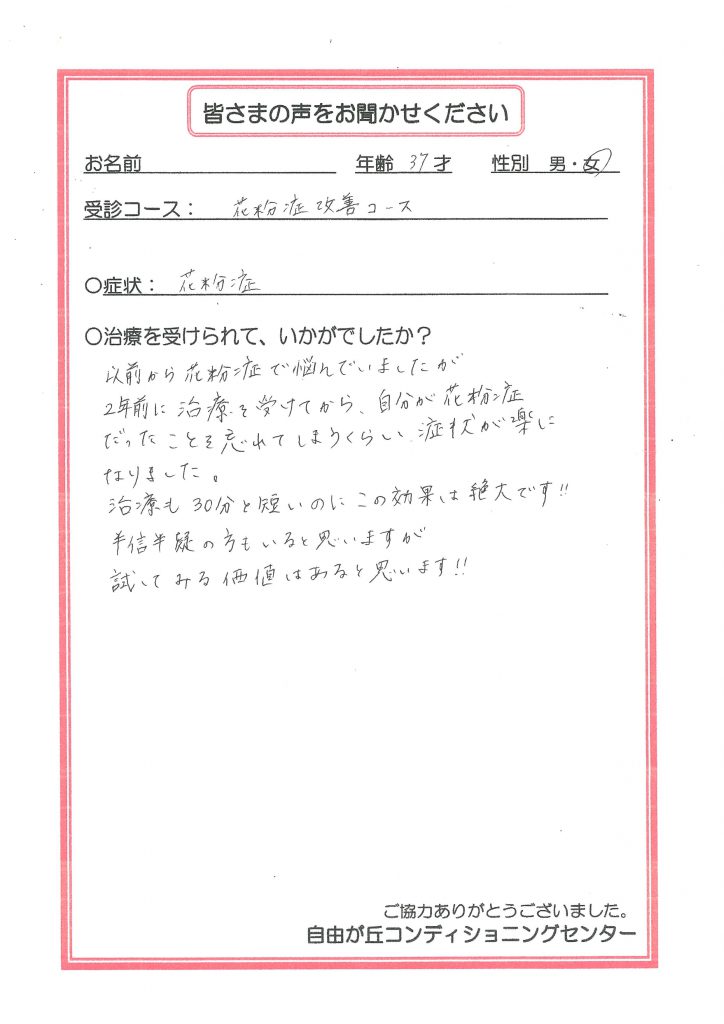 皆さまの声をお聞かせください
お名前 年齢 37 才 性別 男・女
受診コース： 花粉症改善コース
〇症状： 花粉症
〇治療を受けられて、いかがでしたか？
以前から花粉症で悩んでいましたが
2年前に治療を受けてから、自分が花粉症
だったことを忘れてしまうくらい症状が楽に
なりました。
治療も30分と短いのにこの効果は絶大です!!
半信半疑の方もいると思いますが
試してみる価値はあると思います!!
ご協力ありがとうございました。
自由が丘コンディショニングセンター